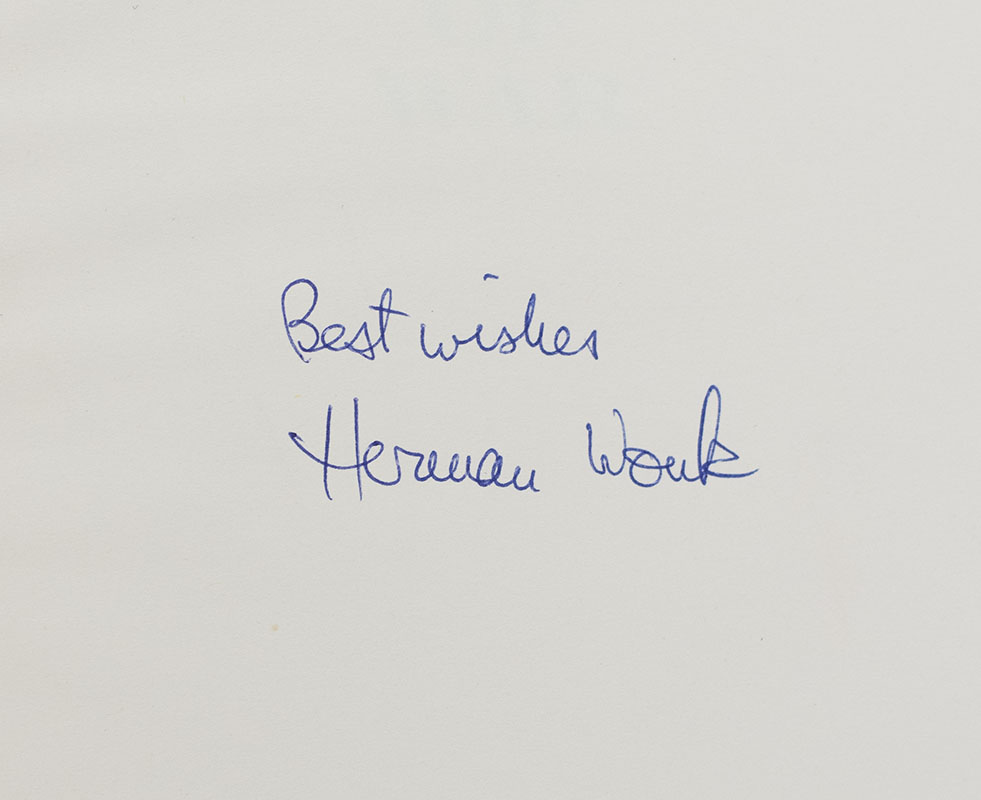 Best wishes
Herman Wouk